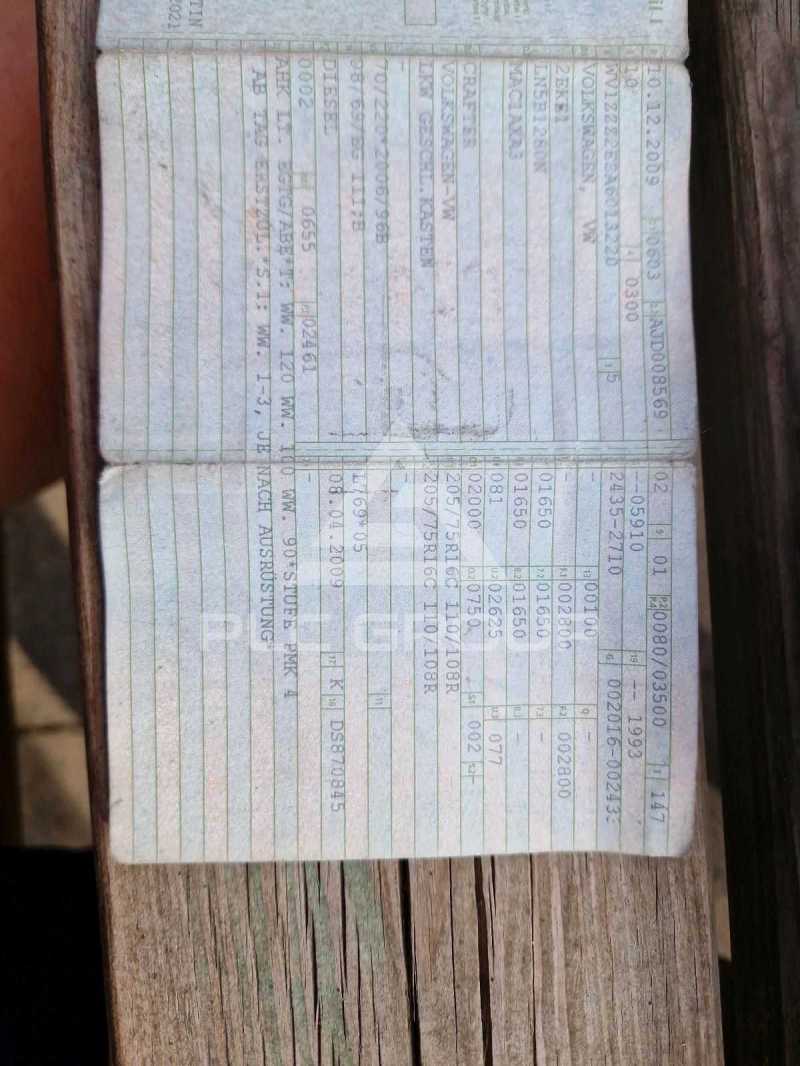 10.12.2009 0603 AJD008569
10 0300
WV1ZZZ2EZA6013220 5
VOLKSWAGEN, VW
2EKE1
CRAFTER
VOLKSWAGEN-VW
LKW GESCHL.KASTEN
-
70/220*2006/96B
98/69/EG III;B
DIESEL
0002 0655 02461
AHK LT. EGTG/ABE*T: WW. 120 WW. 100 WW. 90*STUFE PMK 4
AB TAG ERSTZUL.*S.1: WW. 1-3, JE NACH AUSRÜSTUNG*
02 9 01 P.2 P.4 0080/03500 T 147
--05910 19 -- 1993
2435-2710 G 002016-00243
- 13 00100 Q -
- F.1 002800 F.2 002800
01650 7.2 01650 7.3 -
01650 8.2 01650 8.3 -
081 U.2 02625 U.3 077
02000 D.2 0750 S.1 002 S.2 -
205/75R16C 110/108R
205/75R16C 110/108R
-
11
L*69*05
08.04.2009 17 K 16 DS870845
-
TIN
2021
PLC GROUP